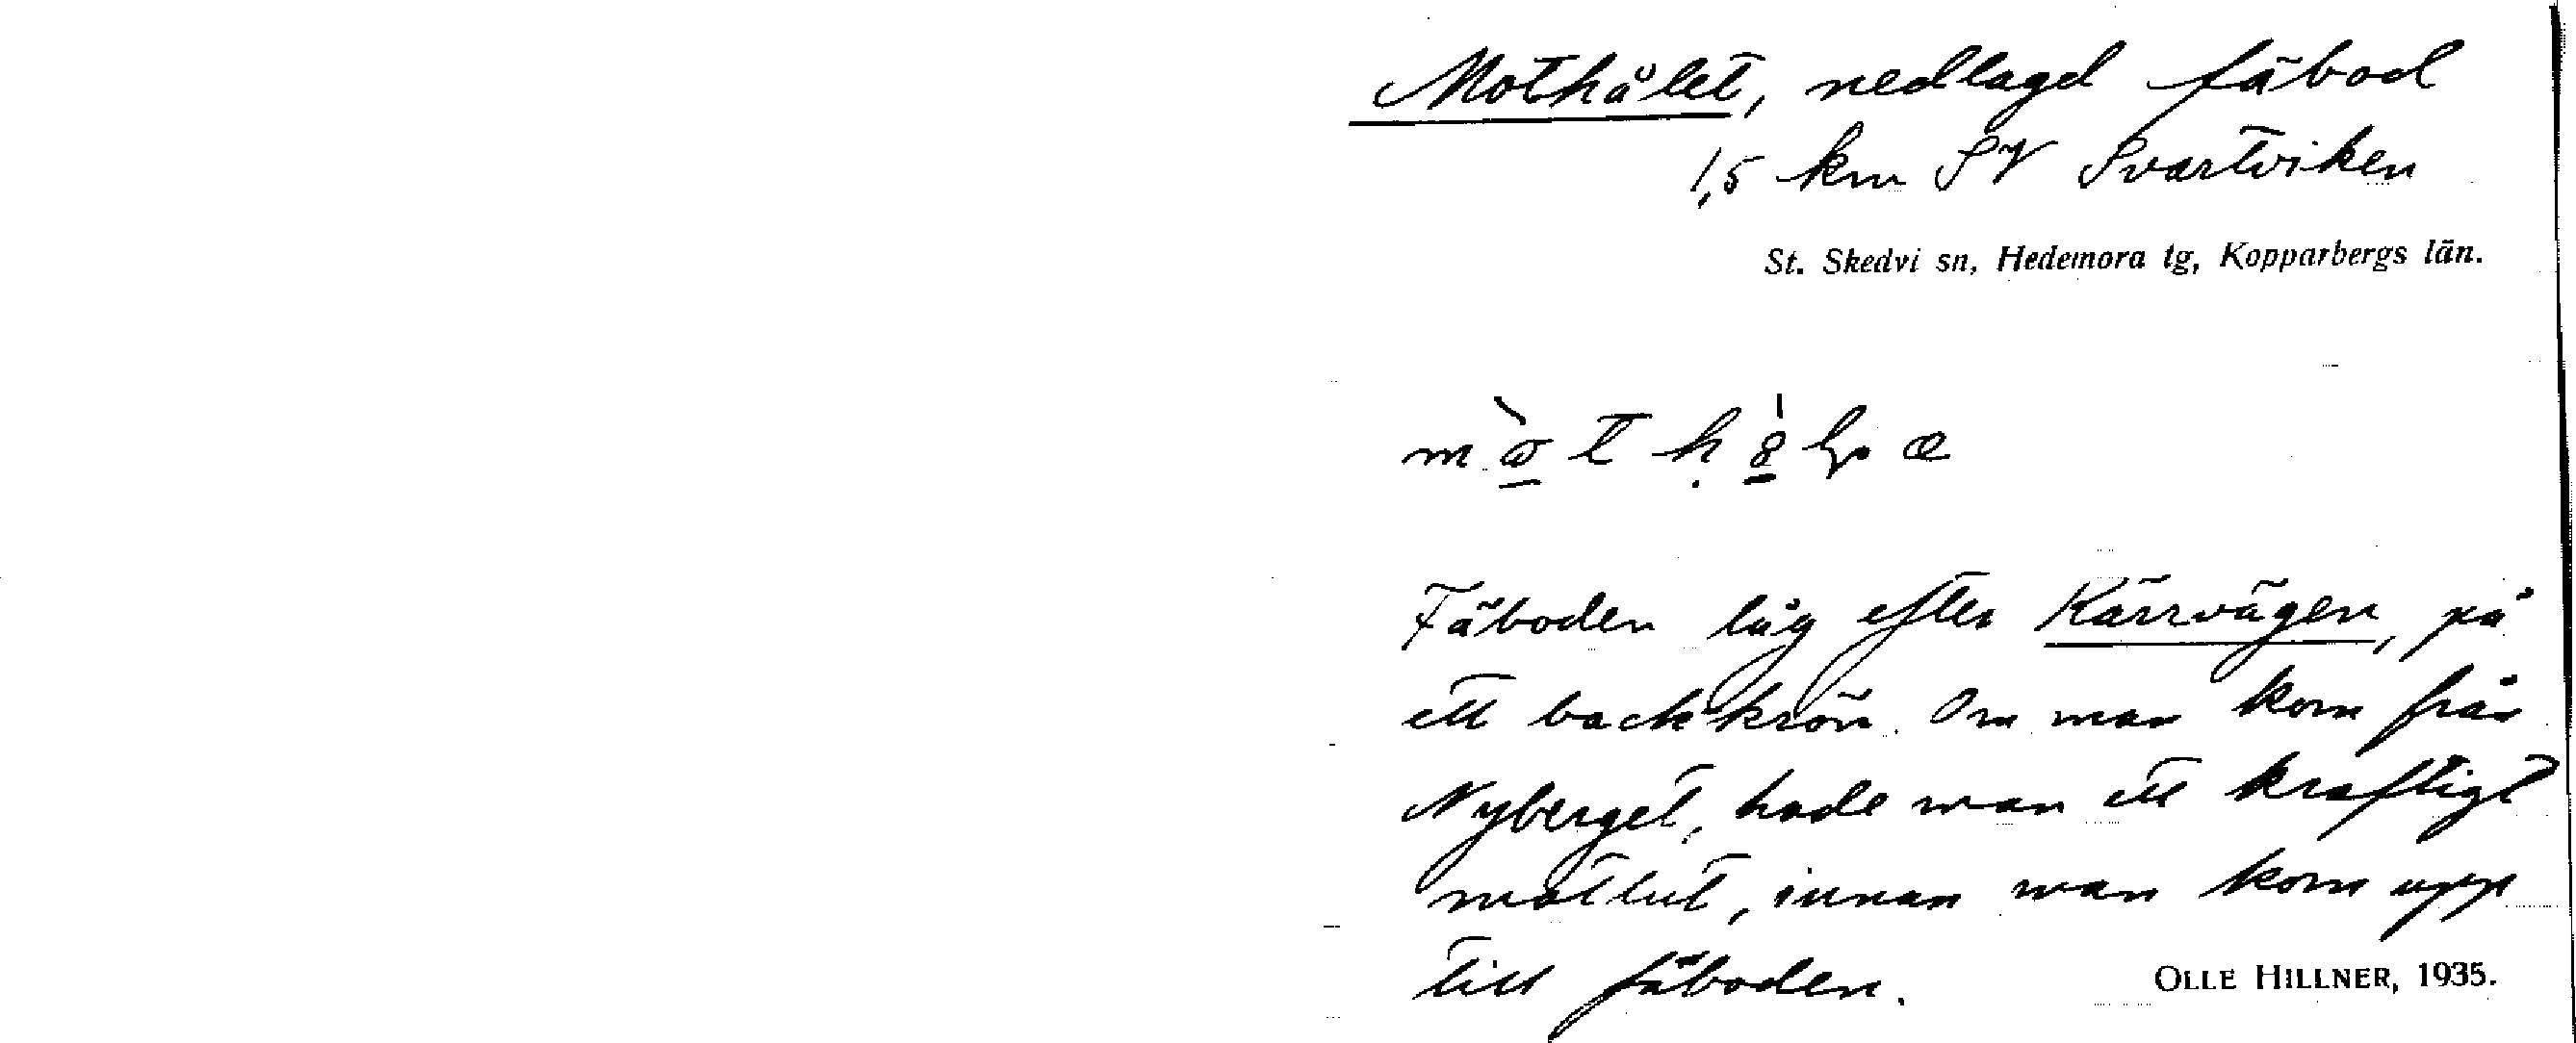 Mothålet, nedlagd fäbod
1,5 km SV Svartviken
St. Skedvi sn, Hedemora tg, Kopparbergs län.
Fäboden låg efter Kärrvägen, på
ett backkrön. Om man kom från
Nyberget, hade man ett kraftigt
motlut, innan man kom upp
till fäboden.
OLLE HILLNER, 1935.